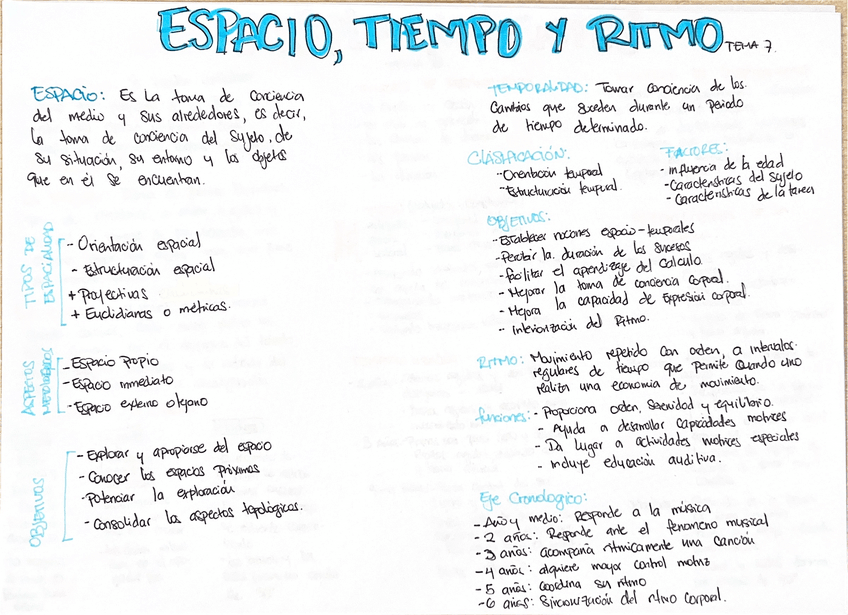 ESPACIO, TIEMPO Y RITMO TEMA 7.
ESPACIO: Es La toma de conciencia
del medio y sus alrededores, es decir,
la toma de conciencia del sujeto, de
su situación, su entorno y los objetos
que en él se encuentran.
TIPOS DE
ESPACIALIDAD
- Orientación espacial
- Estructuración espacial
+ Proyectivas
+ Euclidianas o métricas.
ASPECTOS
- Espacio propio
- Espacio inmediato
- Espacio externo o lejano
OBJETIVOS
- Explorar y apropiarse del espacio
- Conocer los espacios próximos
- Potenciar la exploración
- Consolidar los aspectos topológicos.
TEMPORALIDAD: Tomar conciencia de los
cambios que suceden durante un periodo
de tiempo determinado.
CLASIFICACIÓN:
- Orientación temporal
- Estructuración temporal.
FACTORES:
- influencia de la edad
- Características del sujeto
- Características de la tarea
OBJETIVOS:
- Establecer nociones espacio-temporales
- Percibir la duración de los sucesos
- facilitar el aprendizaje del calculo.
- Mejorar la toma de conciencia corporal.
- Mejora la capacidad de Expresión corporal.
- Interiorización del Ritmo.
RITMO: Movimiento repetido con orden, a intervalos
regulares de tiempo que permite cuando uno
realiza una economia de movimiento.
funciones: - Proporciona orden, serenidad y equilibrio.
- Ayuda a desarrollar capacidades motrices
- Da lugar a actividades motrices especiales
- incluye educación auditiva.
Eje Cronologico:
- Año y medio: Responde a la música
- 2 años: Responde ante el fenomeno musical
- 3 años: acompaña rítmicamente una canción
- 4 años: adquiere mayor control motriz
- 5 años: Coordina su ritmo
- 6 años: Sincronización del ritmo corporal.